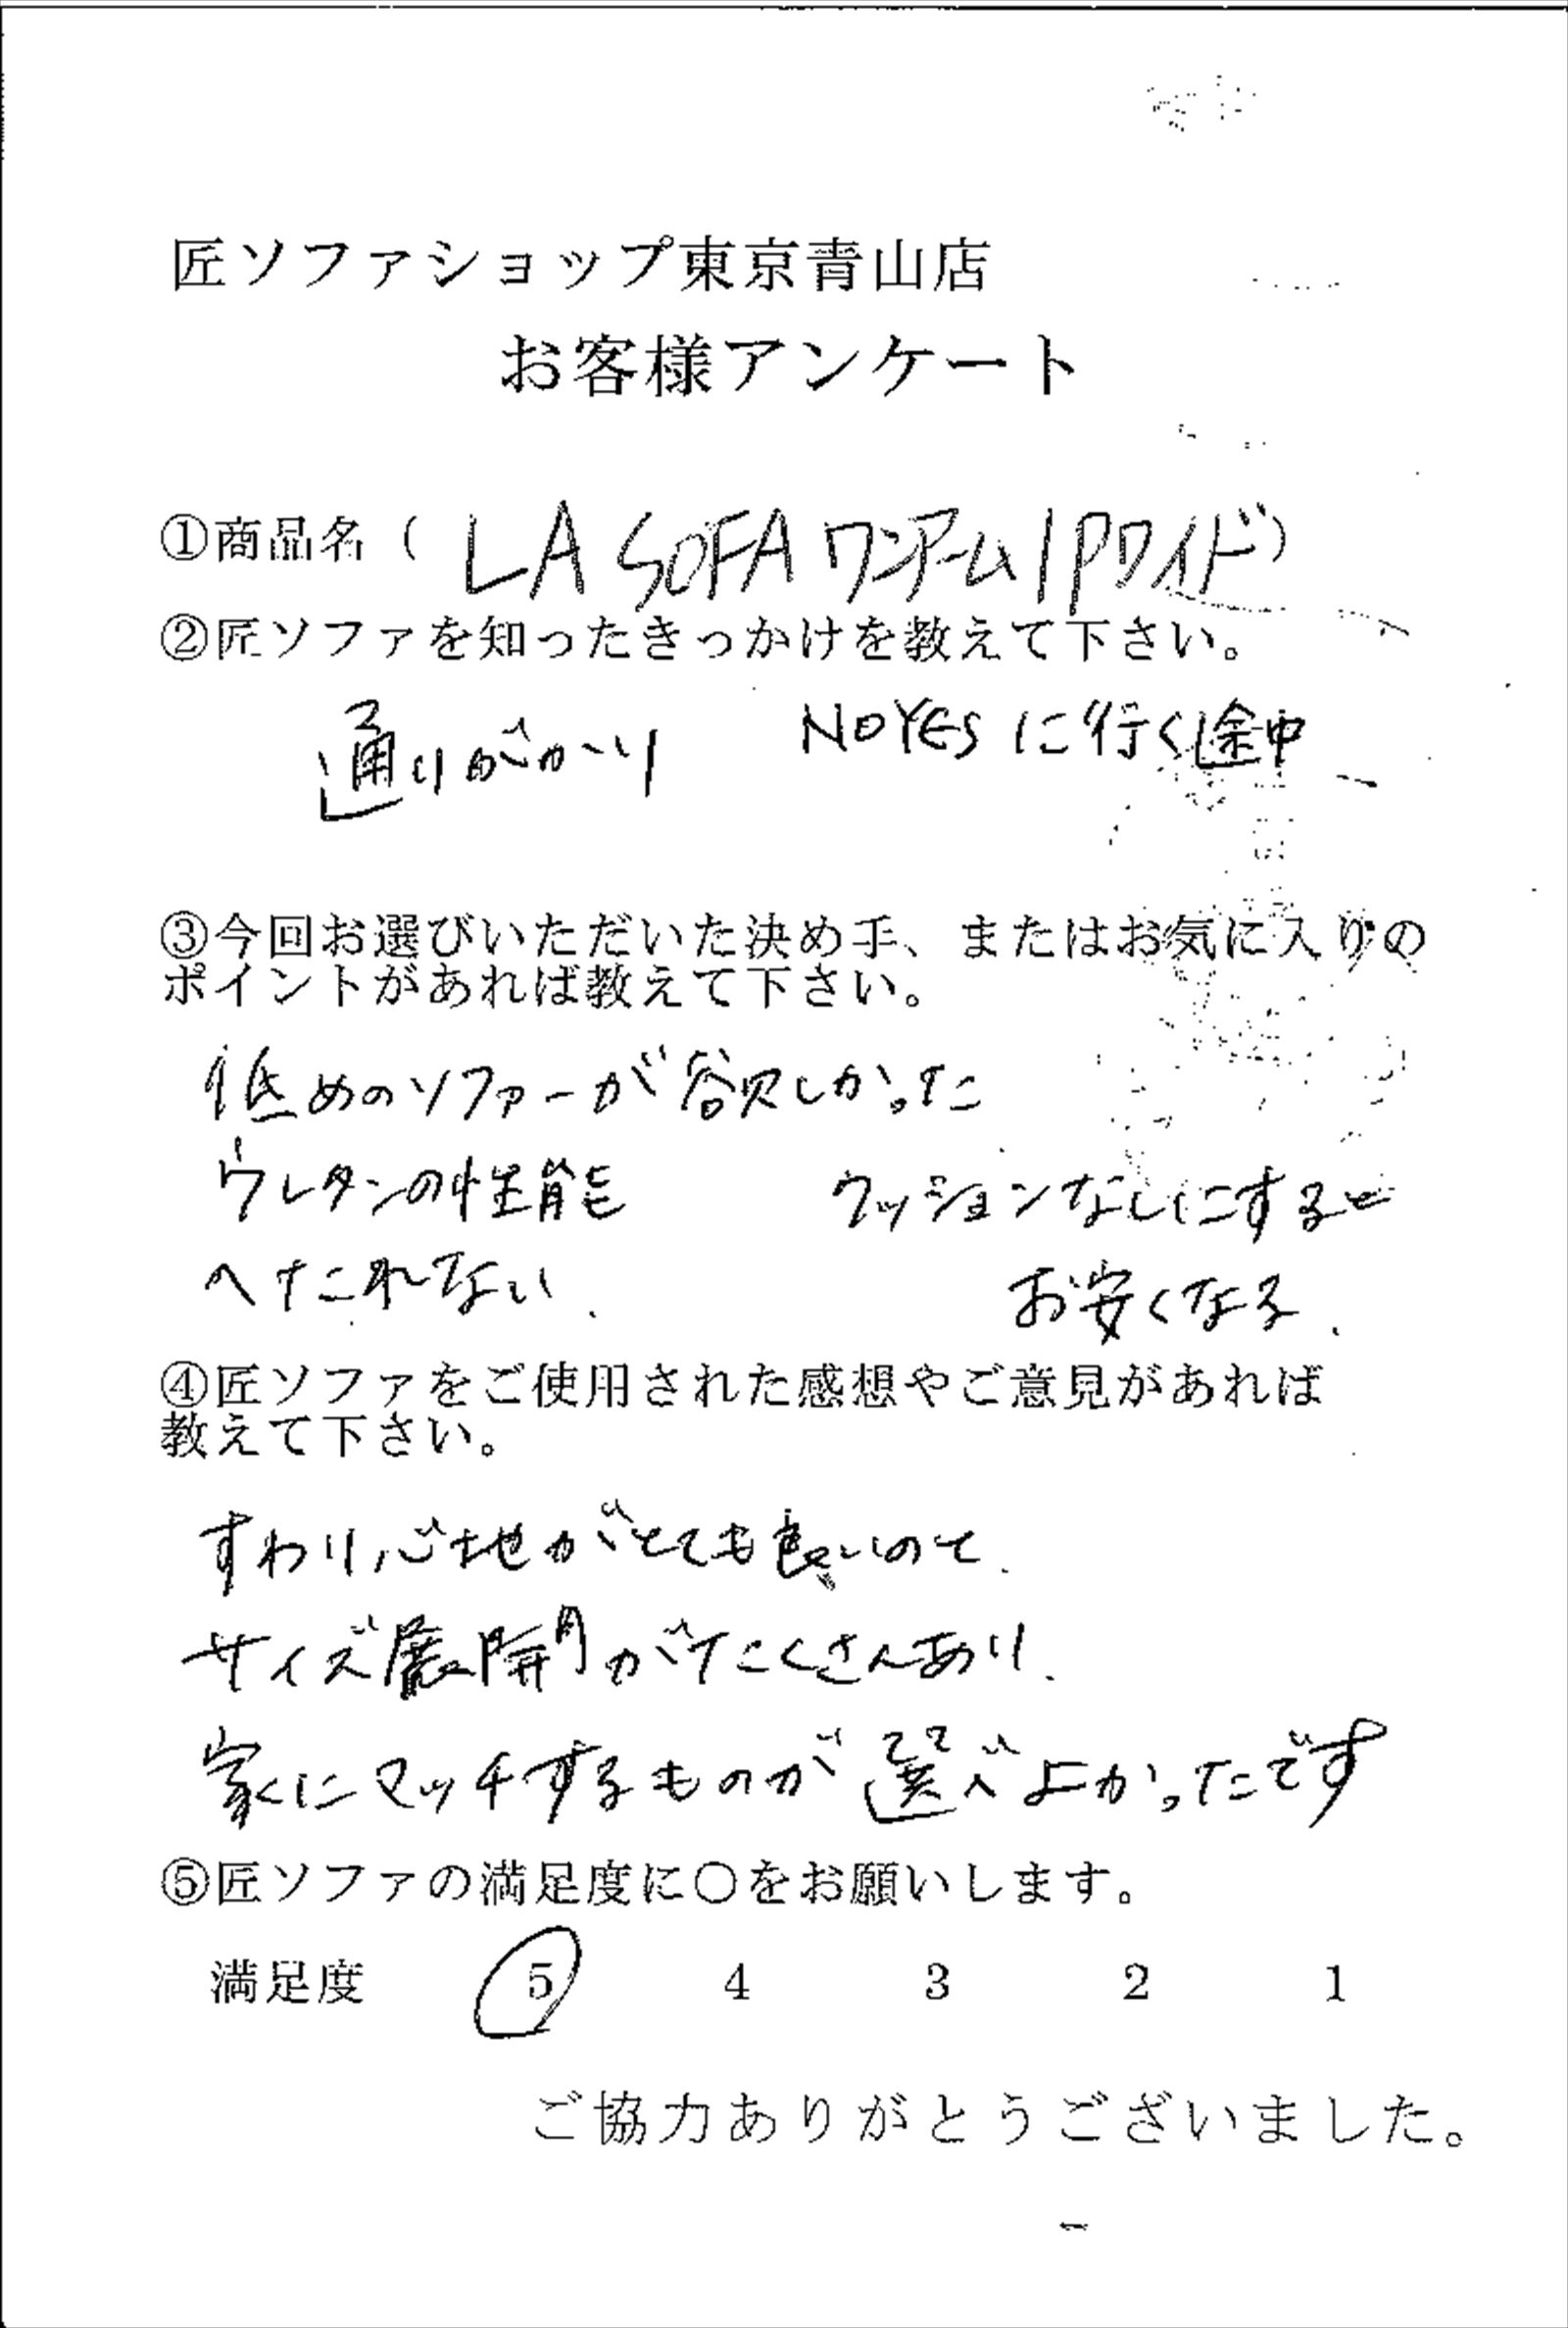 匠ソファショップ東京青山店
お客様アンケート
①商品名（ LA SOFA ワンアーム1Pワイド）
②匠ソファを知ったきっかけを教えて下さい。
通りがかり NOYESに行く途中
③今回お選びいただいた決め手、またはお気に入りの
ポイントがあれば教えて下さい。
低めのソファーが欲しかった
ウレタンの性能 クッションなしにすると
へたれない. お安くなる.
④匠ソファをご使用された感想やご意見があれば
教えて下さい。
すわり心地がとても良いのと.
サイズ展開がたくさんあり.
家にマッチするものが選べよかったです
⑤匠ソファの満足度に〇をお願いします。
満足度 5 4 3 2 1
ご協力ありがとうございました。